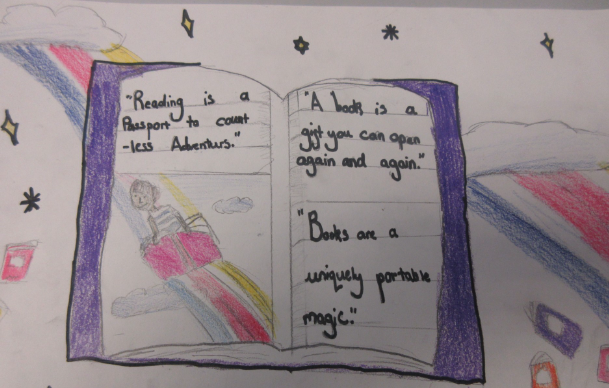 "Reading is a
Passport to count
-less Adventurs."
"A book is a
gift you can open
again and again."
"Books are a
uniquely portable
magic."